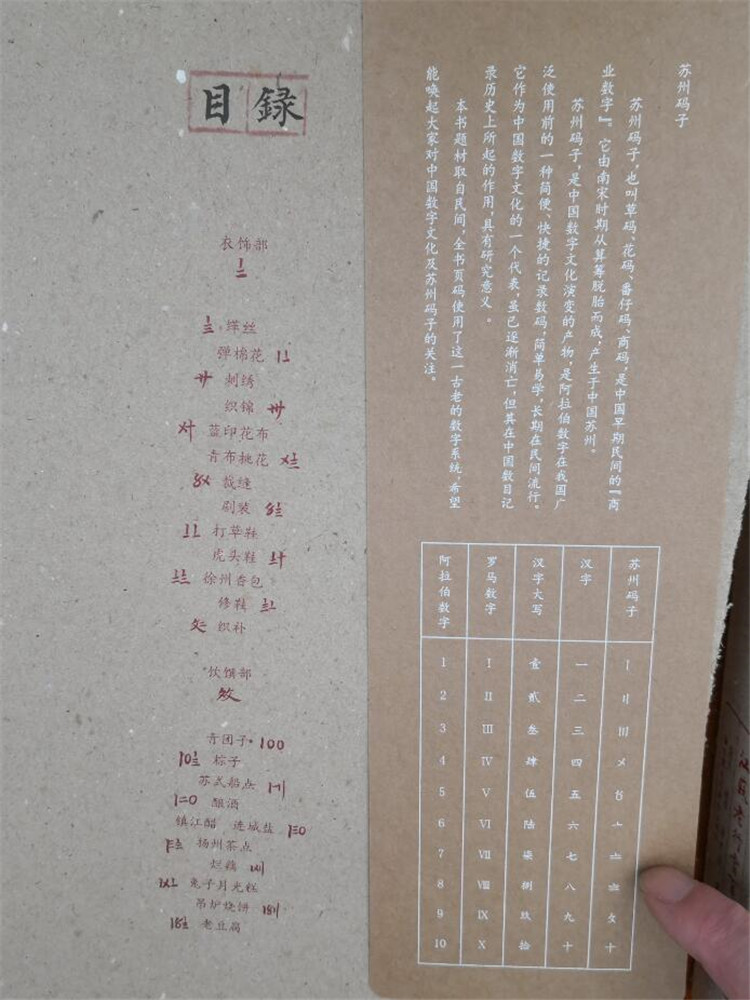 目録
衣饰部
丝
弹棉花
刺绣
织锦
蓝印花布
青布挑花
裁缝
剧装
打草鞋
虎头鞋
徐州香包
修鞋
织补
饮馔部
青团子·100
粽子
苏式船点
酿酒
镇江醋 城盐
扬州茶点
烂藕
兔子月光糕
吊炉烧饼
老豆腐
苏州码子
苏州码子，也叫草码、花码、番仔码、商码，是中国早期民间的『商
业数字』。它由南宋时期从算筹脱胎而成，产生于中国苏州。
苏州码子，是中国数字文化演变的产物，是阿拉伯数字在我国广
泛使用前的一种简便、快捷的记录数码，简单易学，长期在民间流行。
它作为中国数字文化的一个代表，虽已逐渐消亡，但其在中国数目记
录历史上所起的作用，具有研究意义。
本书题材取自民间，全书页码使用了这一古老的数字系统，希望
能唤起大家对中国数字文化及苏州码子的关注。
阿拉伯数字 罗马数字 汉字大写 汉字 苏州码子
1 I 壹 一 〡
2 II 贰 二 〢
3 III 叁 三 〣
4 IV 肆 四 〤
5 V 伍 五 〥
6 VI 陆 六 〦
7 VII 柒 七 〧
8 VIII 捌 八 〨
9 IX 玖 九 〩
10 X 拾 十 十